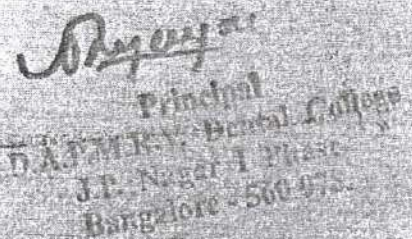 Principal
D.A.P.M.R.V. Dental College
J.P. Nagar I Phase
Bangalore - 560 078.